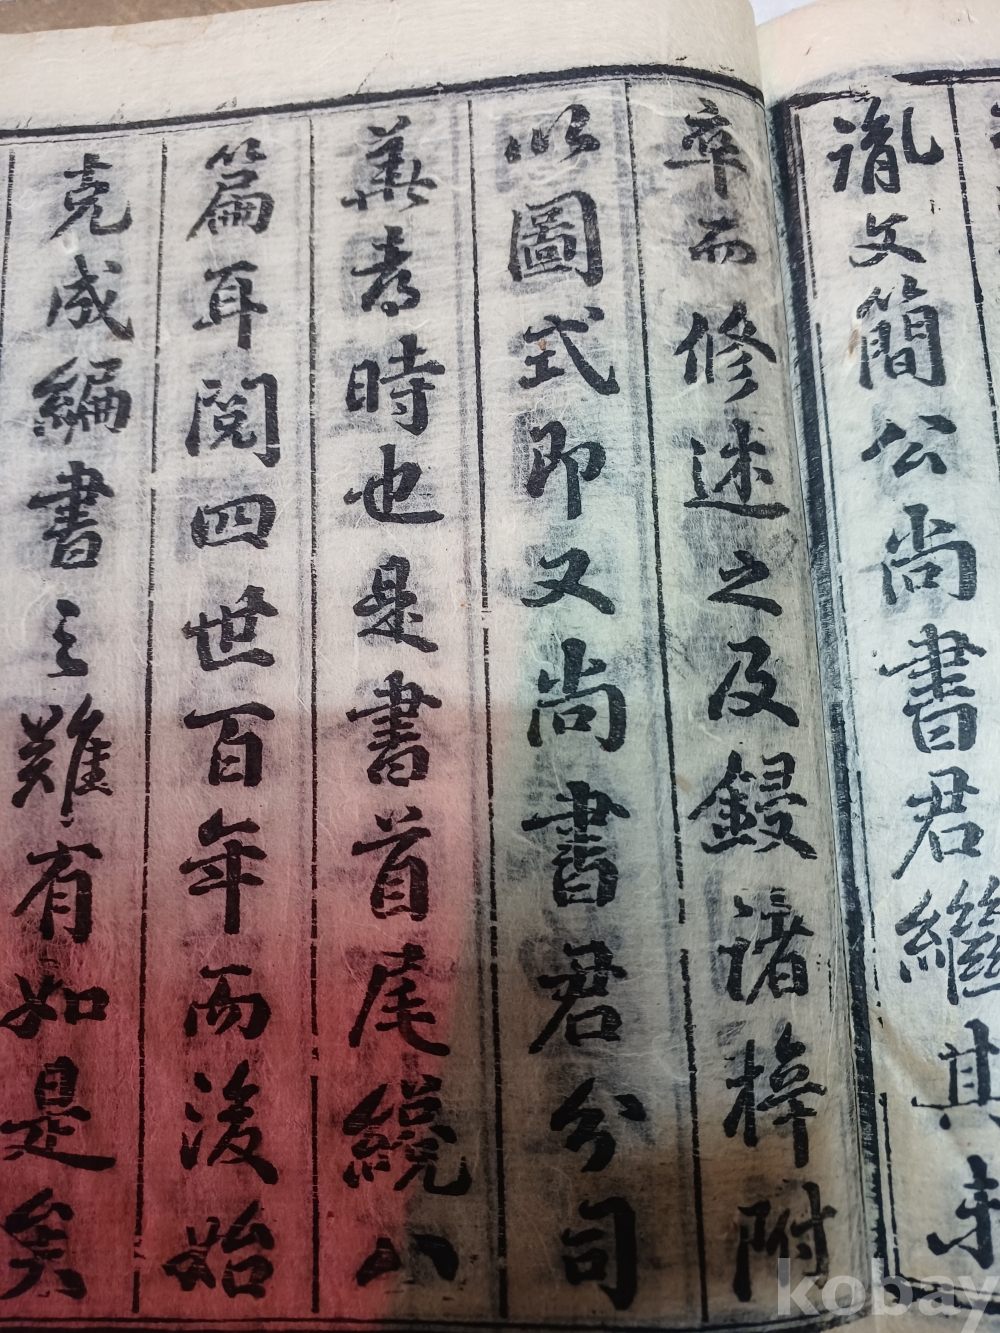 胤文簡公尚書君繼其未
卒而修述之及鋟諸梓附
以圖式即又尚書君分司
華者時也是書首尾纔八
篇耳閱四世百年而後始
克成編書之難有如是矣
kobay